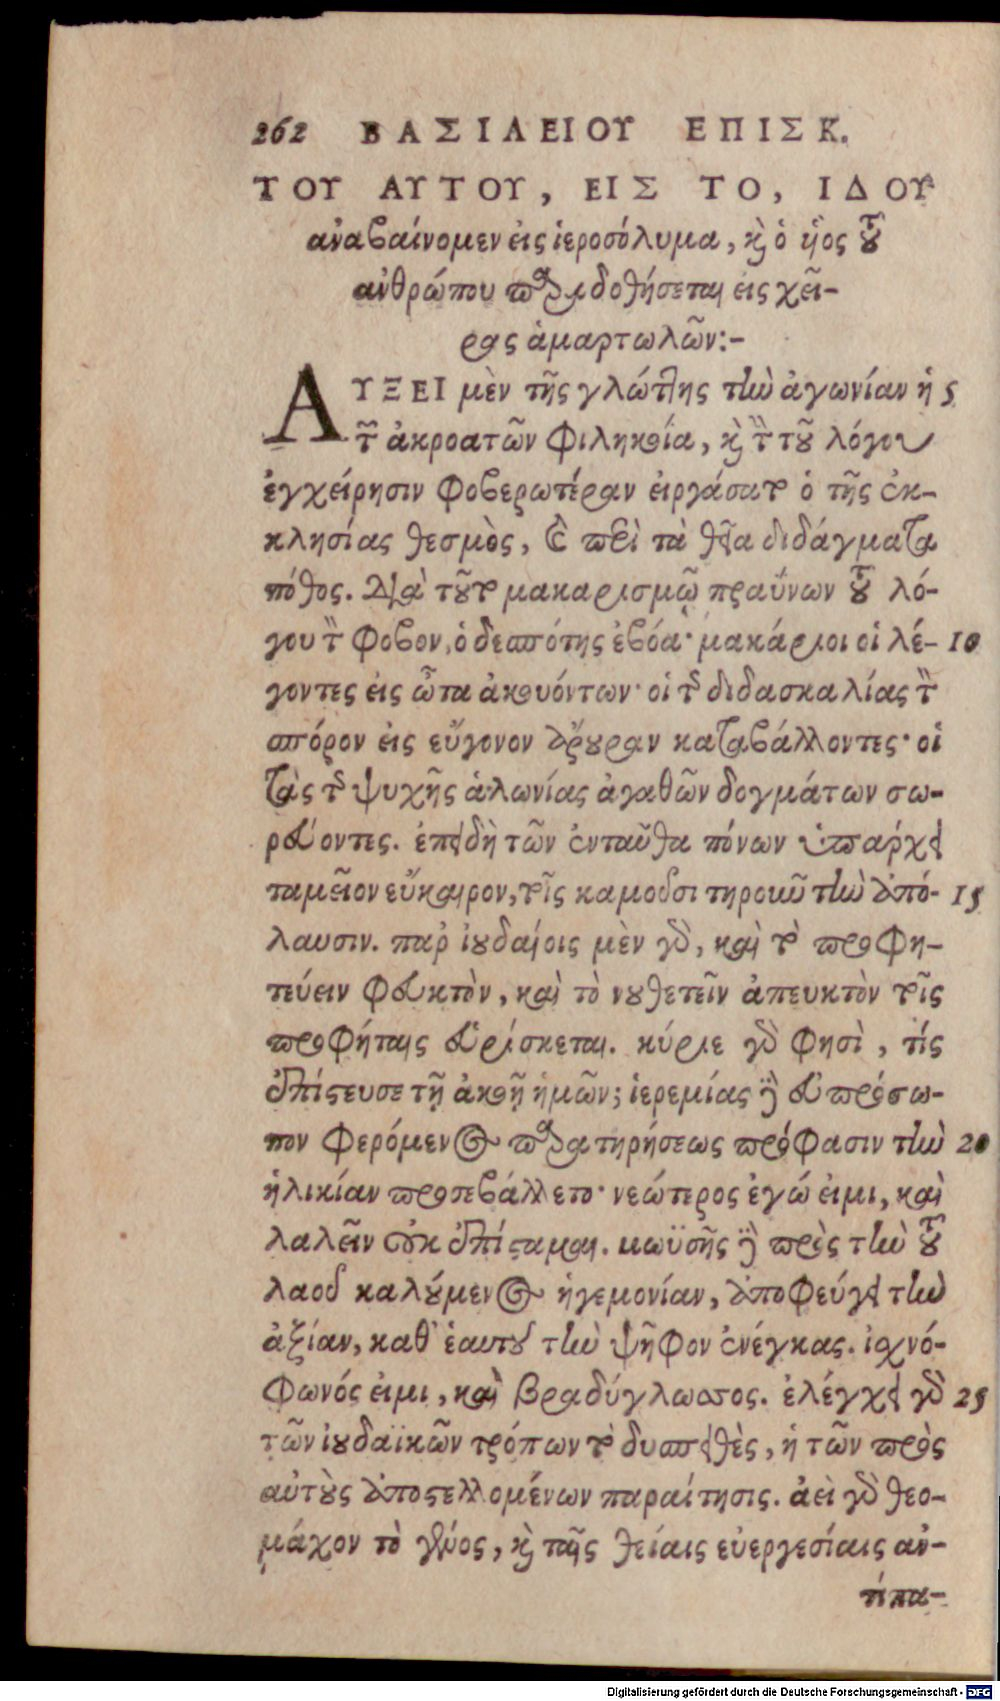 262 ΒΑΣΙΛΕΙΟΥ ΕΠΙΣΚ.
ΤΟΥ ΑΥΤΟΥ, ΕΙΣ ΤΟ, ΙΔΟΥ
αναβαίνομεν εἰς ἱεροσόλυμα, καὶ ὁ υἱὸς τοῦ
ανθρώπου παραδοθήσεται εἰς χεῖ-
ρας ἁμαρτωλῶν:-
ΑΥΞΕΙ μὲν τῆς γλώττης τὴν ἀγωνίαν ἡ 5
τῶν ἀκροατῶν φιληκοΐα, καὶ τὴν τοῦ λόγου
ἐγχείρησιν φοβερωτέραν εἰργάσατο ὁ τῆς ἐκ-
κλησίας θεσμὸς, καὶ ὁ περὶ τὰ θεῖα διδάγματα
πόθος. διὰ τοῦτο μακαρισμῷ πραΰνων τοῦ λό-
γου τὸν φοβον, ὁ δεσπότης ἐβόα· μακάριοι οἱ λέ- 10
γοντες εἰς ὦτα ἀκουόντων· οἱ τῆς διδασκαλίας τὸν
σπόρον εἰς εὔγονον ἄρουραν καταβάλλοντες· οἱ
τὰς τῆς ψυχῆς ἁλωνίας ἀγαθῶν δογμάτων σω-
ρεύοντες. ἐπειδὴ τῶν ἐνταῦθα πόνων ὑπάρχει
ταμεῖον εὔκαιρον, τοῖς καμοῦσι τηροῦν τὴν ἀπό- 15
λαυσιν. παρ ἰουδαίοις μὲν γὰρ, καὶ τὸ προφη-
τεύειν φευκτὸν, καὶ τὸ νουθετεῖν ἀπευκτὸν τοῖς
προφήταις εὑρίσκεται. κύριε γὰρ φησὶ, τίς
ἐπίστευσε τῇ ἀκοῇ ἡμῶν; ἱερεμίας δὲ εὐπρόσω-
πον φερόμενος παρατηρήσεως πρόφασιν τὴν 20
ἡλικίαν προεβάλλετο· νεώτερος ἐγώ εἰμι, καὶ
λαλεῖν οὐκ ἐπίσταμαι. μωϋσῆς δὲ πρὸς τὴν τοῦ
λαοῦ καλούμενος ἡγεμονίαν, ἀποφεύγει τὴν
ἀξίαν, καθ' ἑαυτοῦ τὴν ψῆφον ἐνέγκας. ἰσχνό-
φωνός εἰμι, καὶ βραδύγλωσσος. ἐλέγχει γὰρ 25
τῶν ἰουδαϊκῶν τρόπων τὸ δυσπειθὲς, ἡ τῶν πρὸς
αὐτοὺς ἀποστελλομένων παραίτησις. ἀεὶ γὰρ θεο-
μάχον τὸ γένος, καὶ ταῖς θείαις εὐεργεσίαις αν-
τιπα-
Digitalisierung gefördert durch die Deutsche Forschungsgemeinschaft - DFG